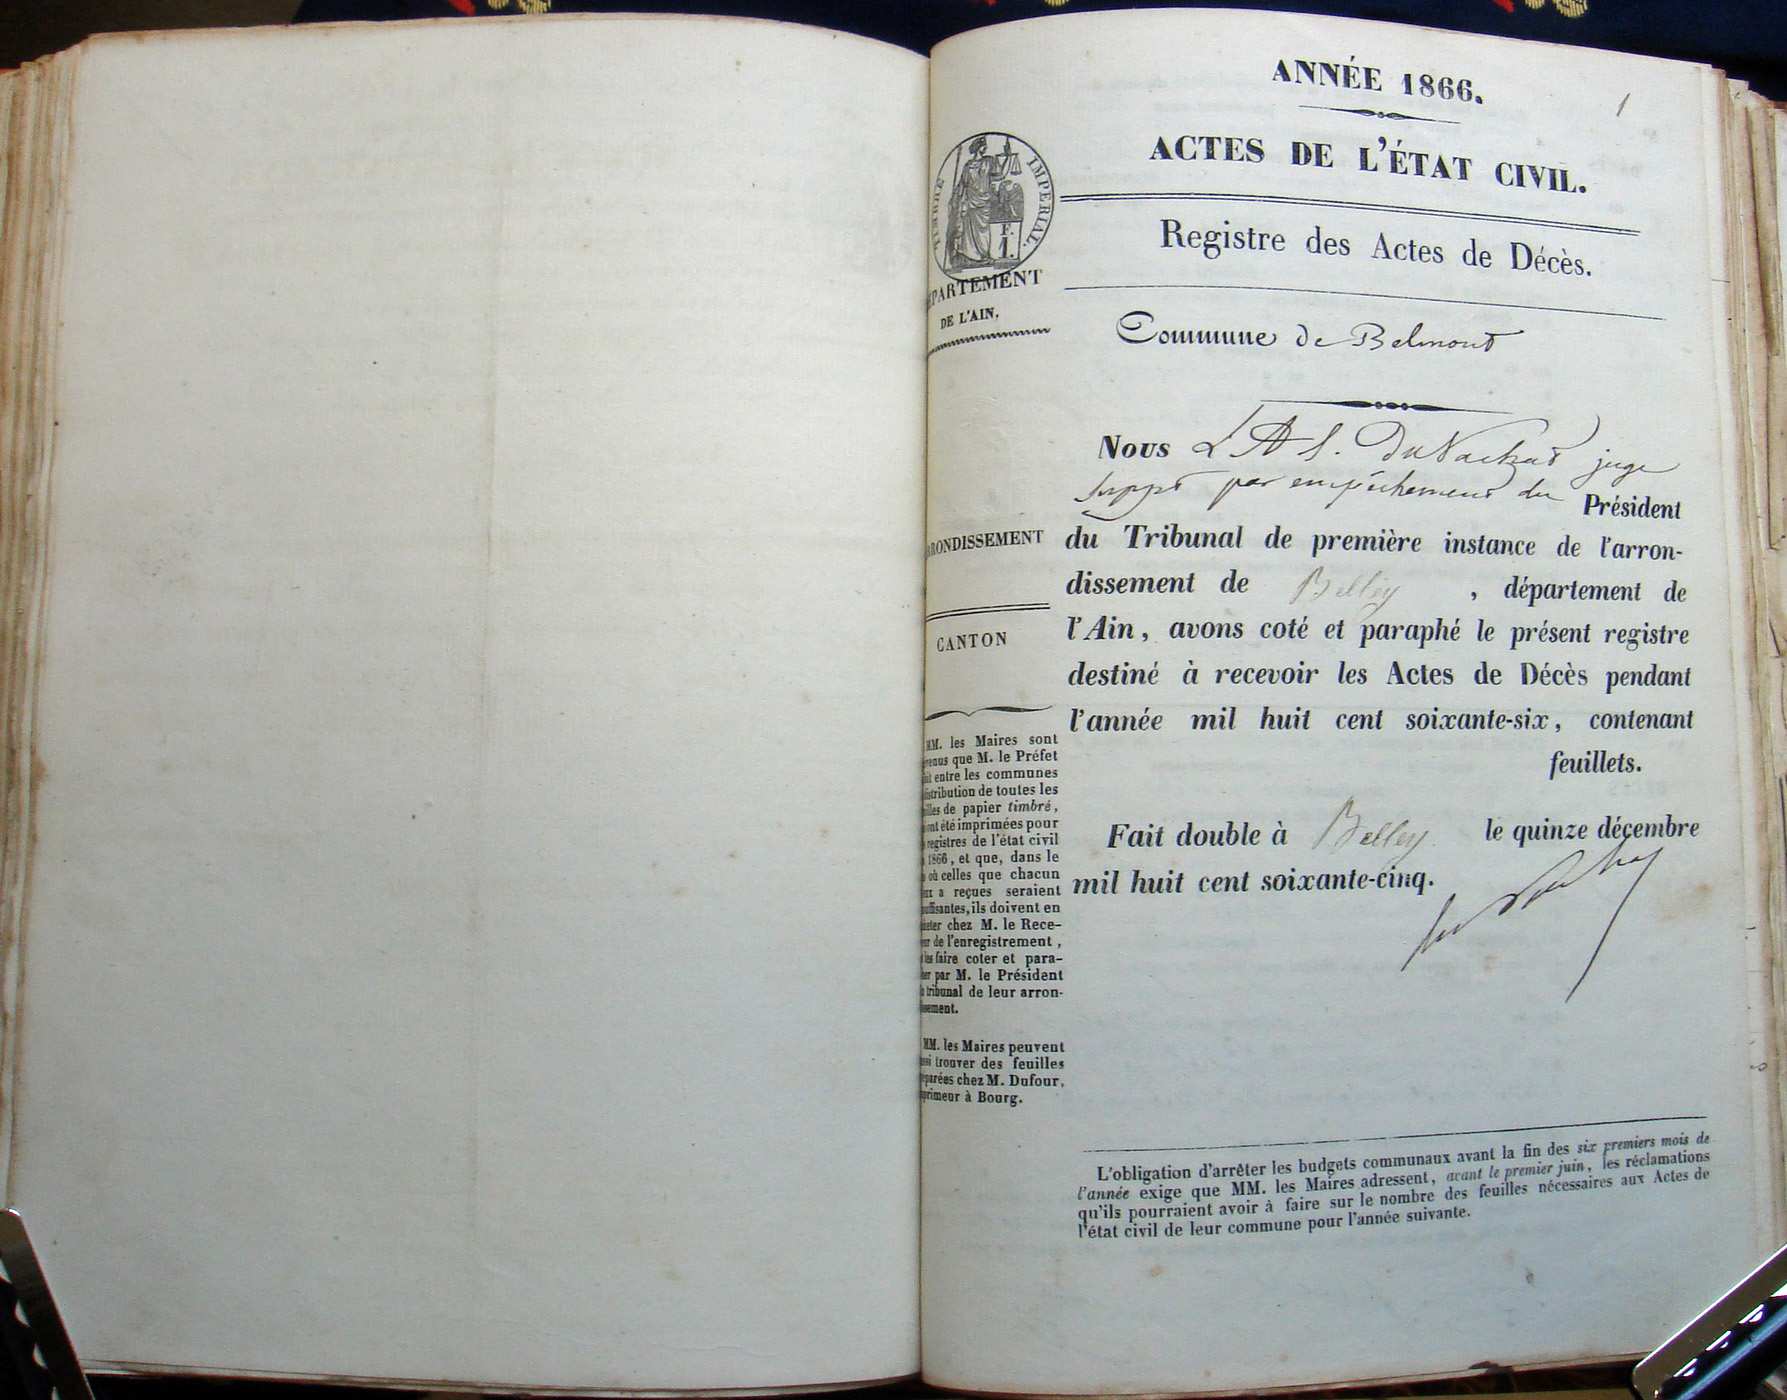 ANNÉE 1866.
1
ACTES DE L'ÉTAT CIVIL.
Registre des Actes de Décès.
TIMBRE IMPÉRIAL.
F.
1.
PARTEMENT
DE L'AIN.
Commune de Belmont
Nous L A S. juge
suppt par empêchement du Président
du Tribunal de première instance de l'arron-
dissement de Belley, département de
l'Ain, avons coté et paraphé le présent registre
destiné à recevoir les Actes de Décès pendant
l'année mil huit cent soixante-six, contenant
feuillets.
Fait double à Belley le quinze décembre
mil huit cent soixante-cinq.
RONDISSEMENT
CANTON
MM. les Maires sont
venus que M. le Préfet
ait entre les communes
distribution de toutes les
illes de papier timbré,
ont été imprimées pour
registres de l'état civil
1866, et que, dans le
où celles que chacun
eux a reçues seraient
uffisantes, ils doivent en
heter chez M. le Rece-
eur de l'enregistrement,
les faire coter et para-
her par M. le Président
u tribunal de leur arron-
ssement.
MM. les Maires peuvent
ssi trouver des feuilles
éparées chez M. Dufour,
primeur à Bourg.
L'obligation d'arrêter les budgets communaux avant la fin des six premiers mois de
l'année exige que MM. les Maires adressent, avant le premier juin, les réclamations
qu'ils pourraient avoir à faire sur le nombre des feuilles nécessaires aux Actes de
l'état civil de leur commune pour l'année suivante.